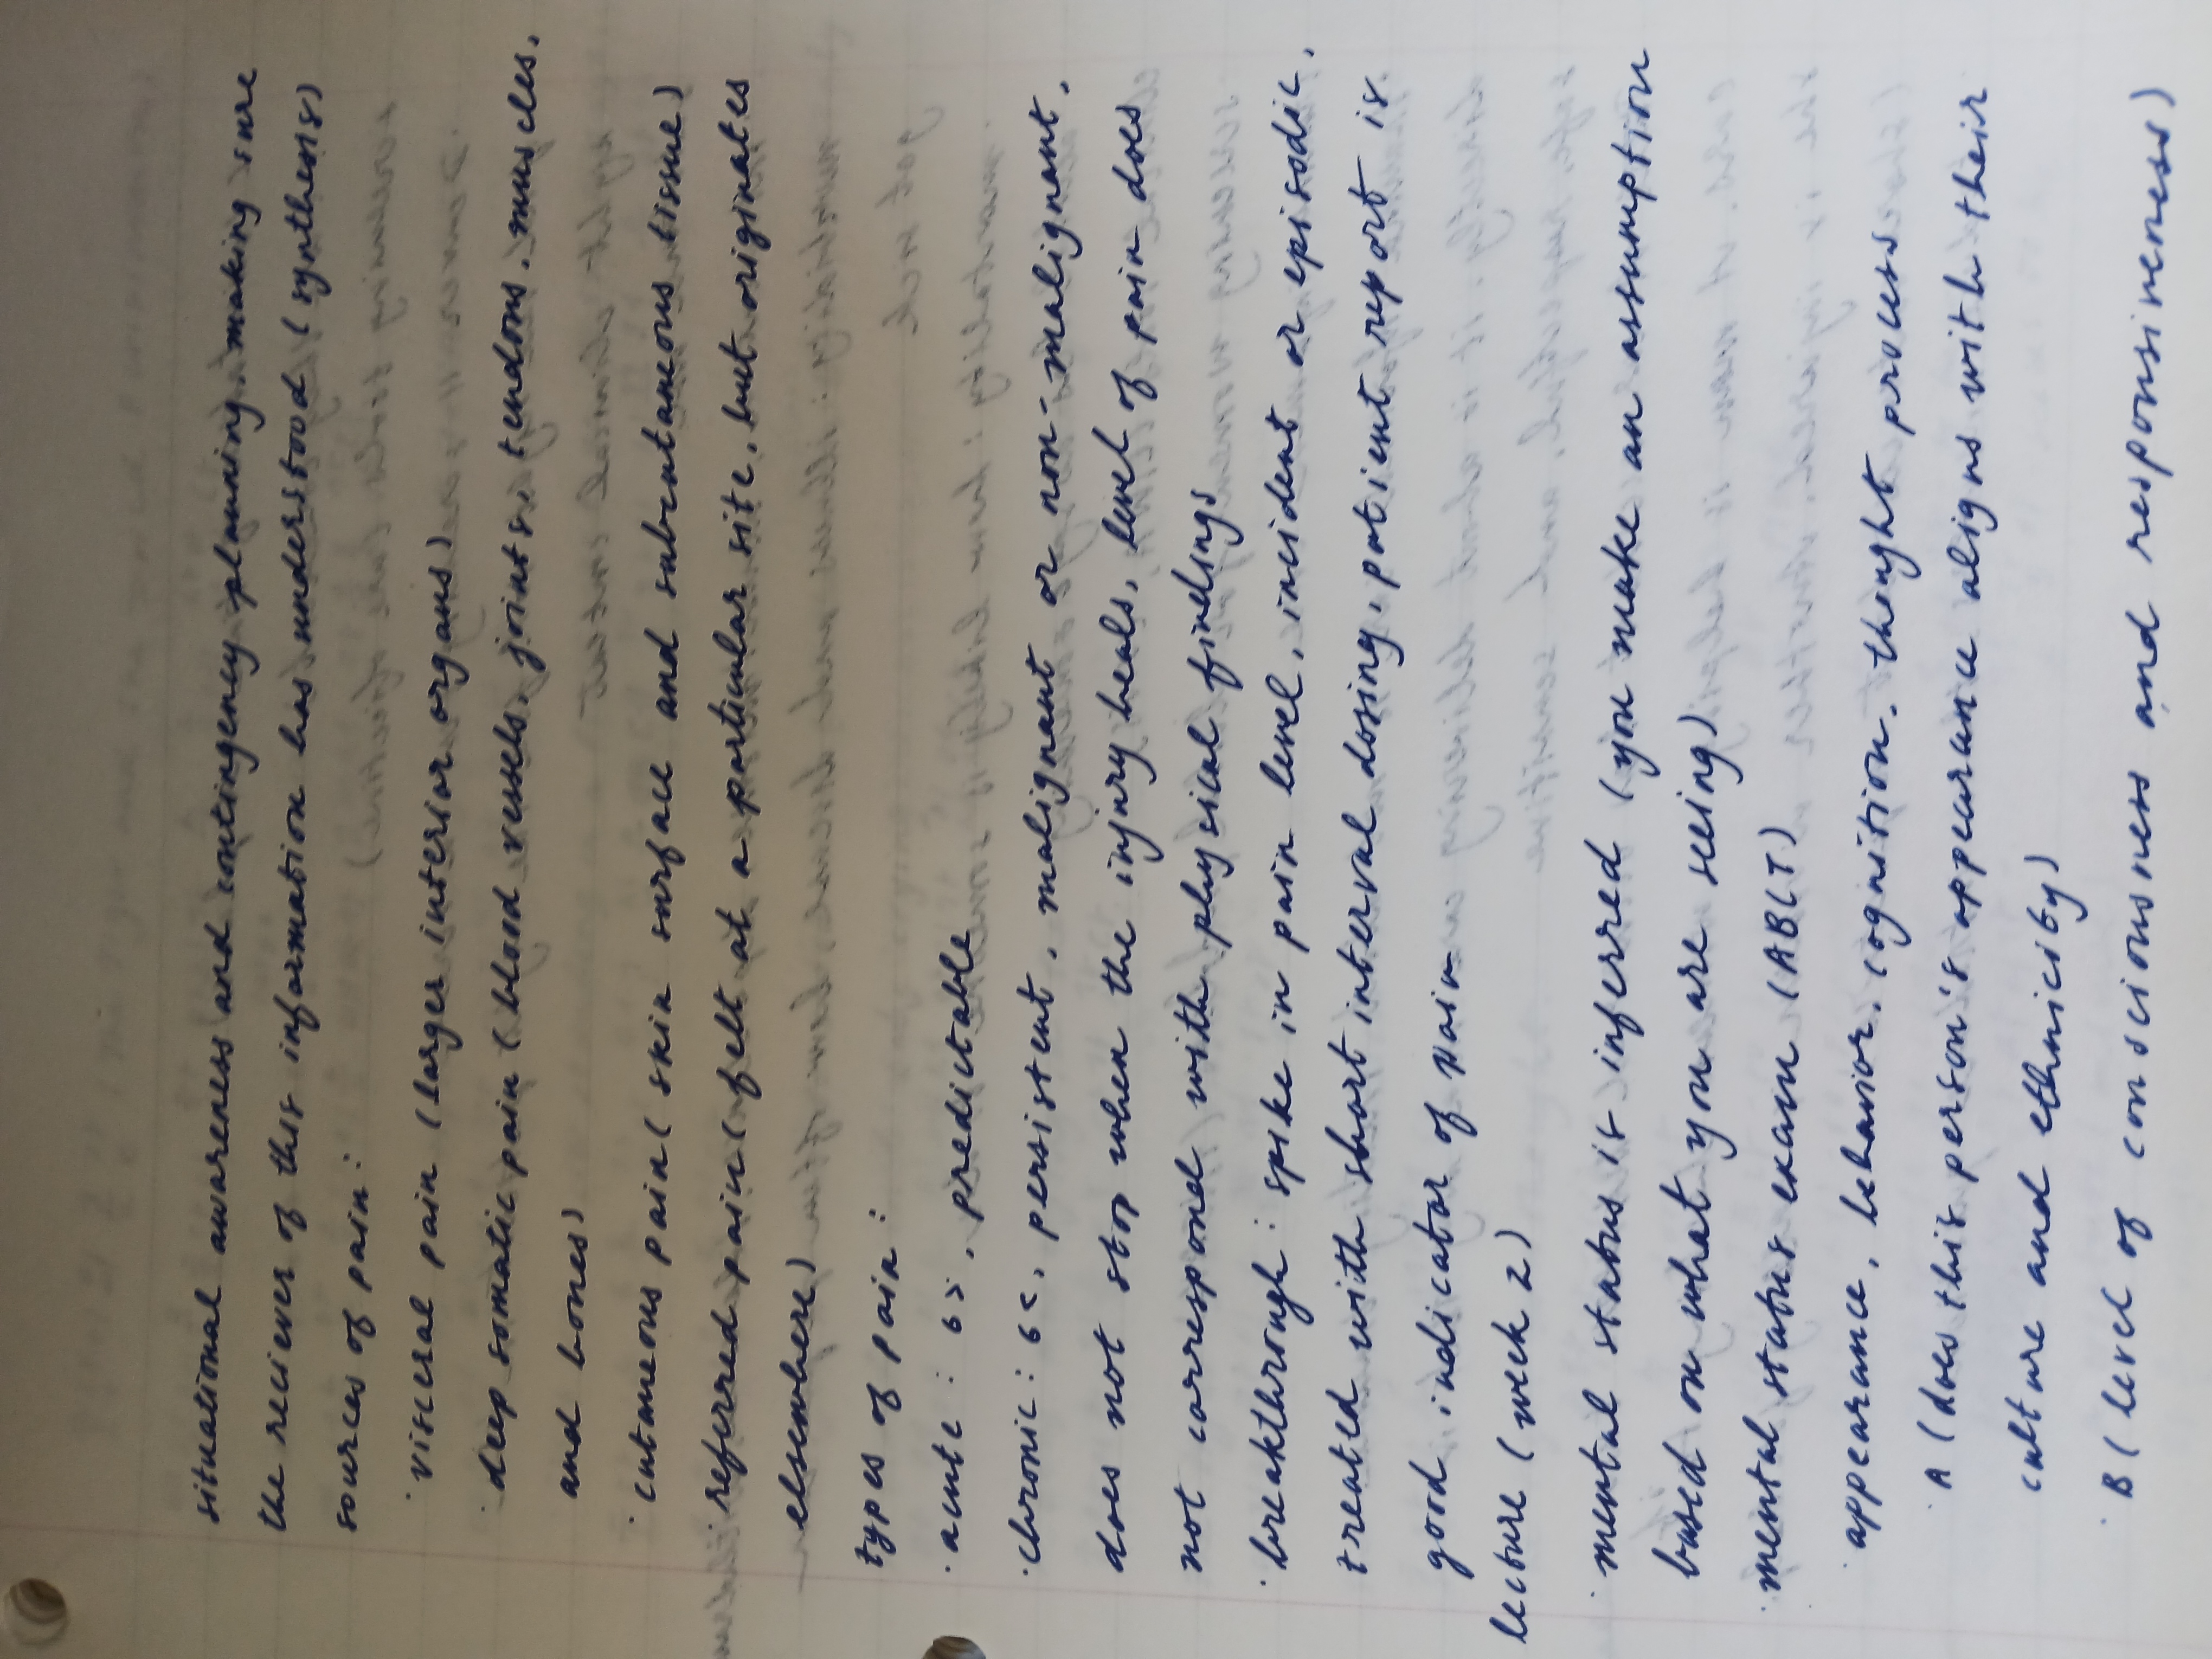 situational awareness and contingency planning. making sure
the reciever of this information has understood (synthesis)
sources of pain:
· visceral pain (larger interior organs)
· deep somatic pain (blood vessels, joints, tendons, muscles,
and bones)
· cutaneous pain (skin surface and subcutaneous tissue)
· referred pain (felt at a particular site, but originates
elsewhere)
types of pain:
· acute: 6>, predictable
· chronic: 6<, persistent, malignant or non-malignant,
does not stop when the injury heals, level of pain does
not correspond with physical findings
· breakthrough: spike in pain level, incident or episodic,
treated with short interval dosing, patient report is
good indicator of pain
lecture (week 2)
· mental status is inferred (you make an assumption
based on what you are seeing)
· mental status exam (ABCT)
· appearance, behavior, cognition, thought process
· A (does this person's appearance aligns with their
culture and ethnicity)
· B (level of consciousness and responsiveness)